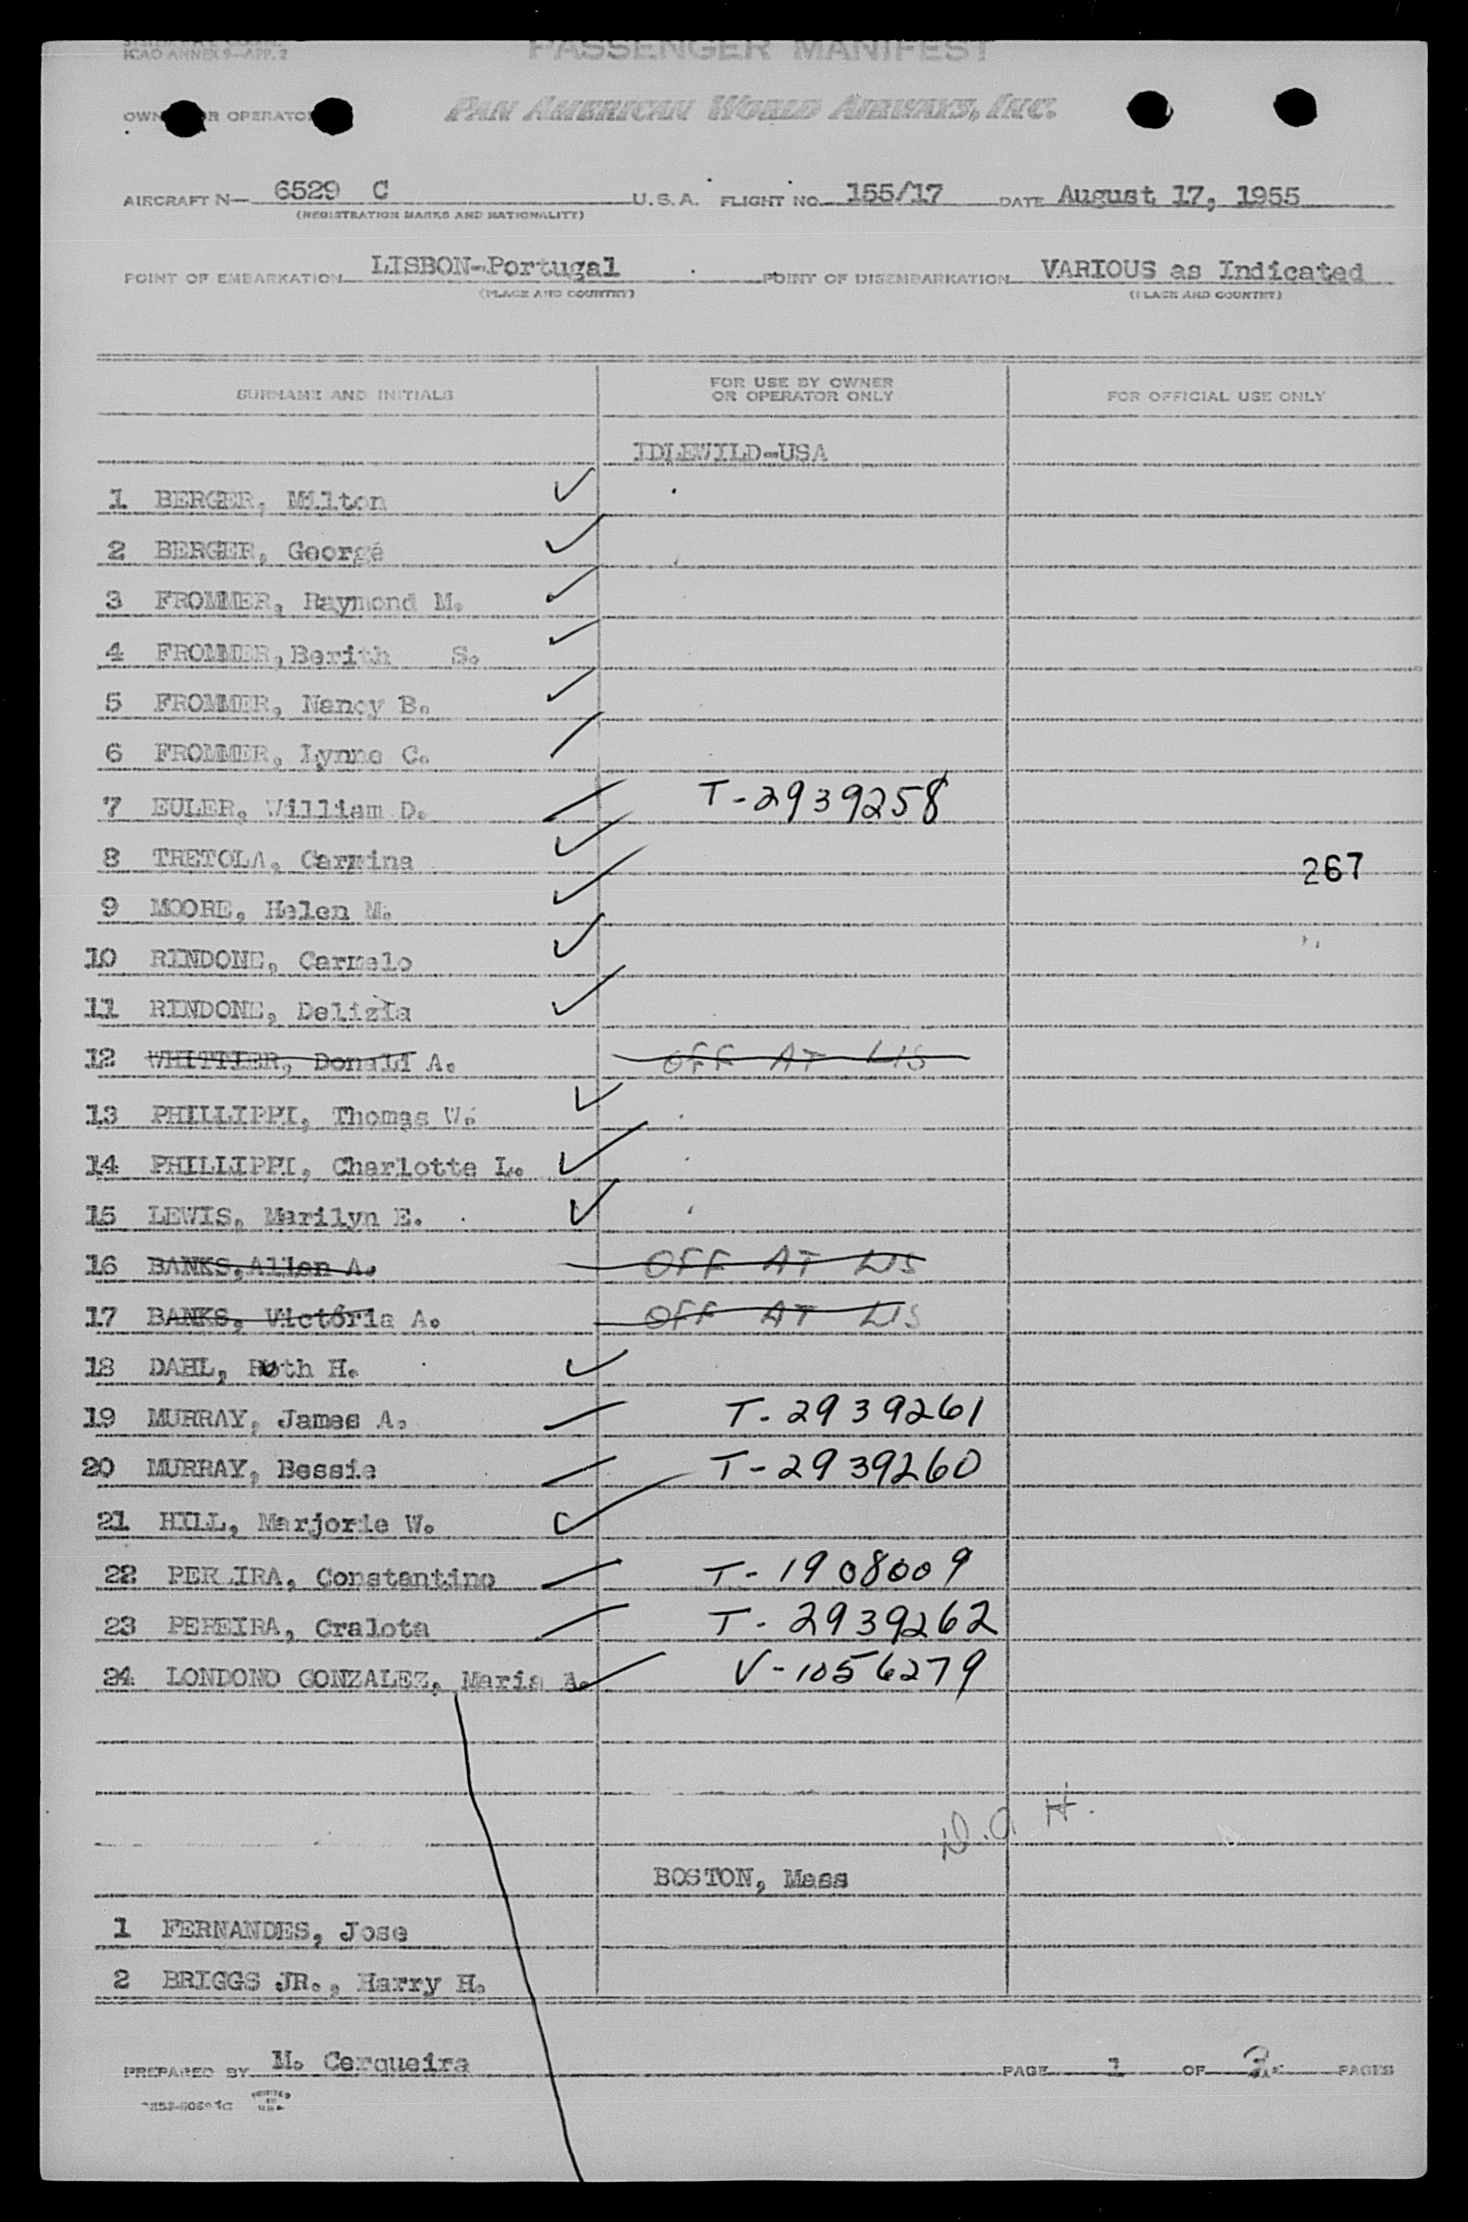 ICAO ANNEX 9—APP. 2
PASSENGER MANIFEST
OWNER OR OPERATOR PAN AMERICAN WORLD AIRWAYS, INC.
AIRCRAFT N— 6529 C U.S.A. FLIGHT NO. 155/17 DATE August 17, 1955
(REGISTRATION MARKS AND NATIONALITY)
POINT OF EMBARKATION LISBON-Portugal POINT OF DISEMBARKATION VARIOUS as Indicated
(PLACE AND COUNTRY) (PLACE AND COUNTRY)
SURNAME AND INITIALS FOR USE BY OWNER OR OPERATOR ONLY FOR OFFICIAL USE ONLY
IDLEWILD-USA
1 BERGER, Milton
2 BERGER, George
3 FROMMER, Raymond M.
4 FROMMER, Berith S.
5 FROMMER, Nancy B.
6 FROMMER, Lynne C.
7 EULER, William D. T-2939258
8 TRETOLA, Carmina 267
9 MOORE, Helen M.
10 RINDONE, Carmelo
11 RINDONE, Delizia
12 WHITTIER, Donald A. OFF AT LIS
13 PHILLIPPI, Thomas W.
14 PHILLIPPI, Charlotte L.
15 LEWIS, Marilyn E.
16 BANKS, Allen A. OFF AT LIS
17 BANKS, Victoria A. OFF AT LIS
18 DAHL, Ruth H.
19 MURRAY, James A. T-2939261
20 MURRAY, Bessie T-2939260
21 HILL, Marjorie W.
22 PER IRA, Constantino T-1908009
23 PEREIRA, Cralota T-2939262
24 LONDONO GONZALEZ, Maria A. V-1056279
BOSTON, Mass
1 FERNANDES, Jose
2 BRIGGS JR., Harry H.
PREPARED BY M. Cerqueira PAGE 1 OF 2 PAGES
PRINTED IN U.S.A.